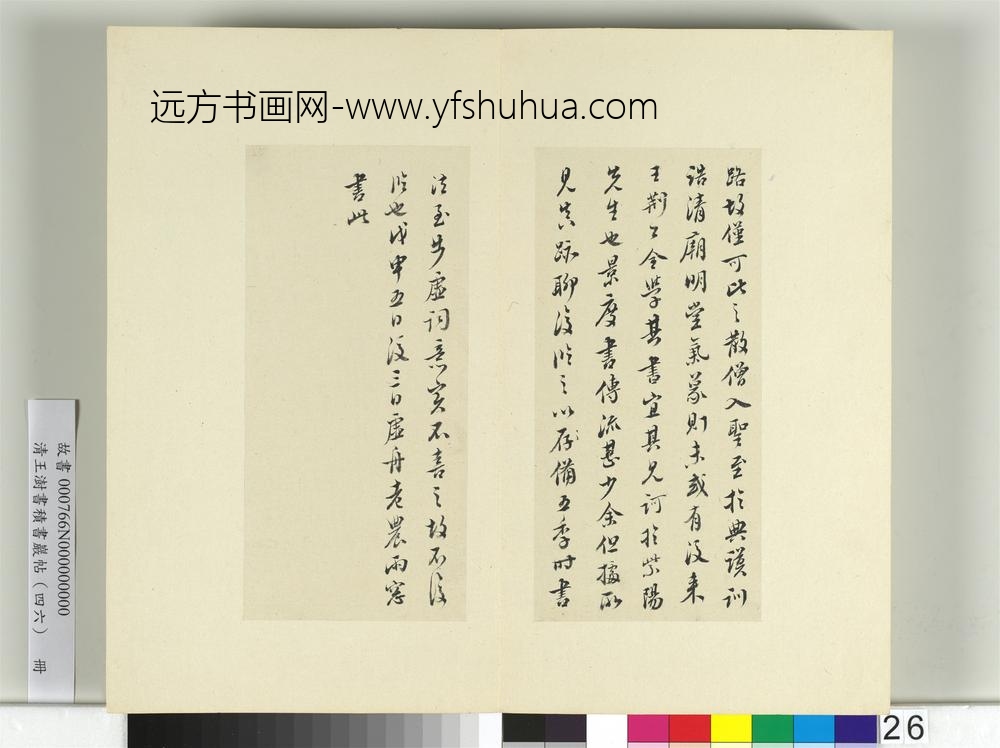 远方书画网-www.yfshuhua.com
路故僅可比之散僧入聖至於典謨訓
誥清廟明堂氣象則未或有汲來
王荆公全學其書宜其見訶於紫陽
先生也景度書傳流甚少余但據所
見真跡聊復臨之以存備五季時書
法至步虛詞意實不喜之故不復
臨也戊申五日後三日虛舟老農雨窓
書此
故書 000766N000000000
清王澍書積書巖帖（四六） 冊
26